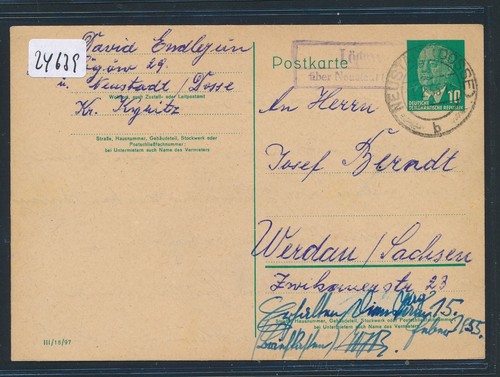 24639
David Emdlejun
29
u. Neustadt/Dosse
Kr. Kyritz
Wohnort, auch Zustell- oder Leitpostamt
Straße, Hausnummer, Gebäudeteil, Stockwerk oder
Postschließfachnummer;
bei Untermietern auch Name des Vermieters
III/18/97
Postkarte
über Neustadt
NEUSTADT (DOSSE)
b
DEUTSCHE
DEMOKRATISCHE REPUBLIK
10
An Herrn
Josef Berndt
Werdau/Sachsen
Zwickauerstr. 23
Straße, Hausnummer, Gebäudeteil, Stockwerk oder
Postschließfachnummer;
bei Untermietern auch Name des Vermieters
Erhalten Dienstag 15.
Feber 1955.